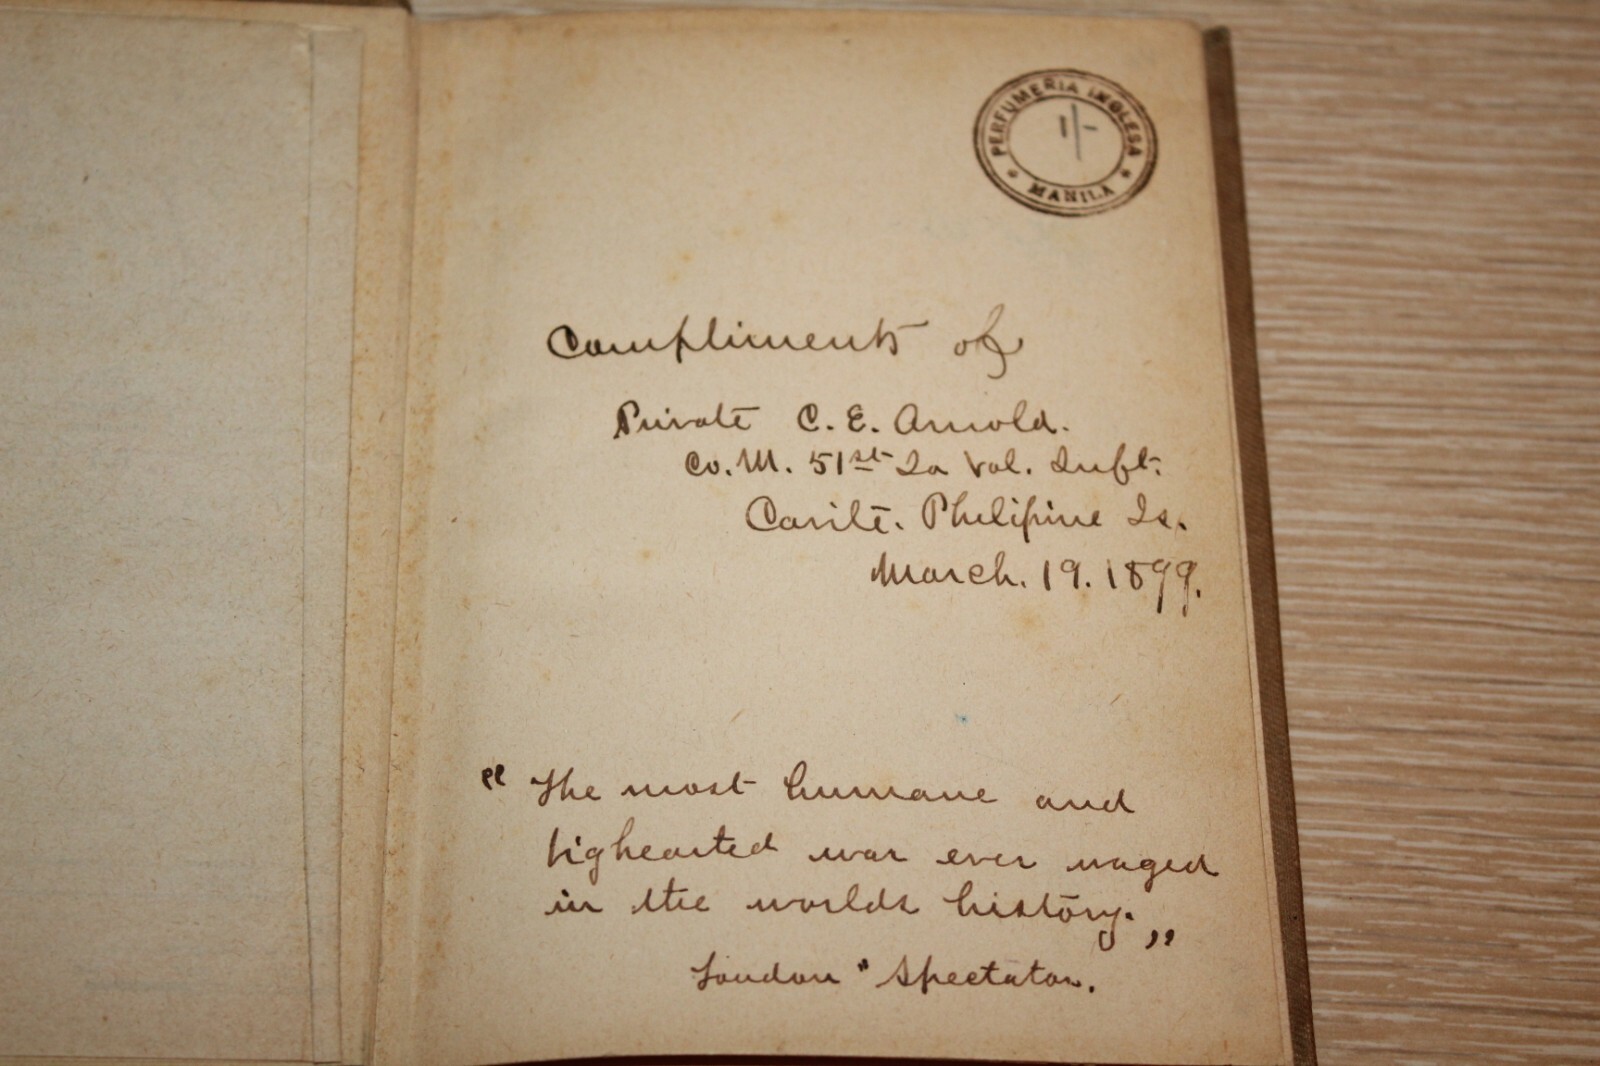 PERFUMERIA INGLESA
1/-
* MANILA *
Compliments of
Private C. E. Arnold.
Co. M. 51st Ia Vol. Inft.
Cavite. Philipine Is.
March. 19. 1899.
"The most humane and
bighearted war ever waged
in the worlds history."
London "Spectator.